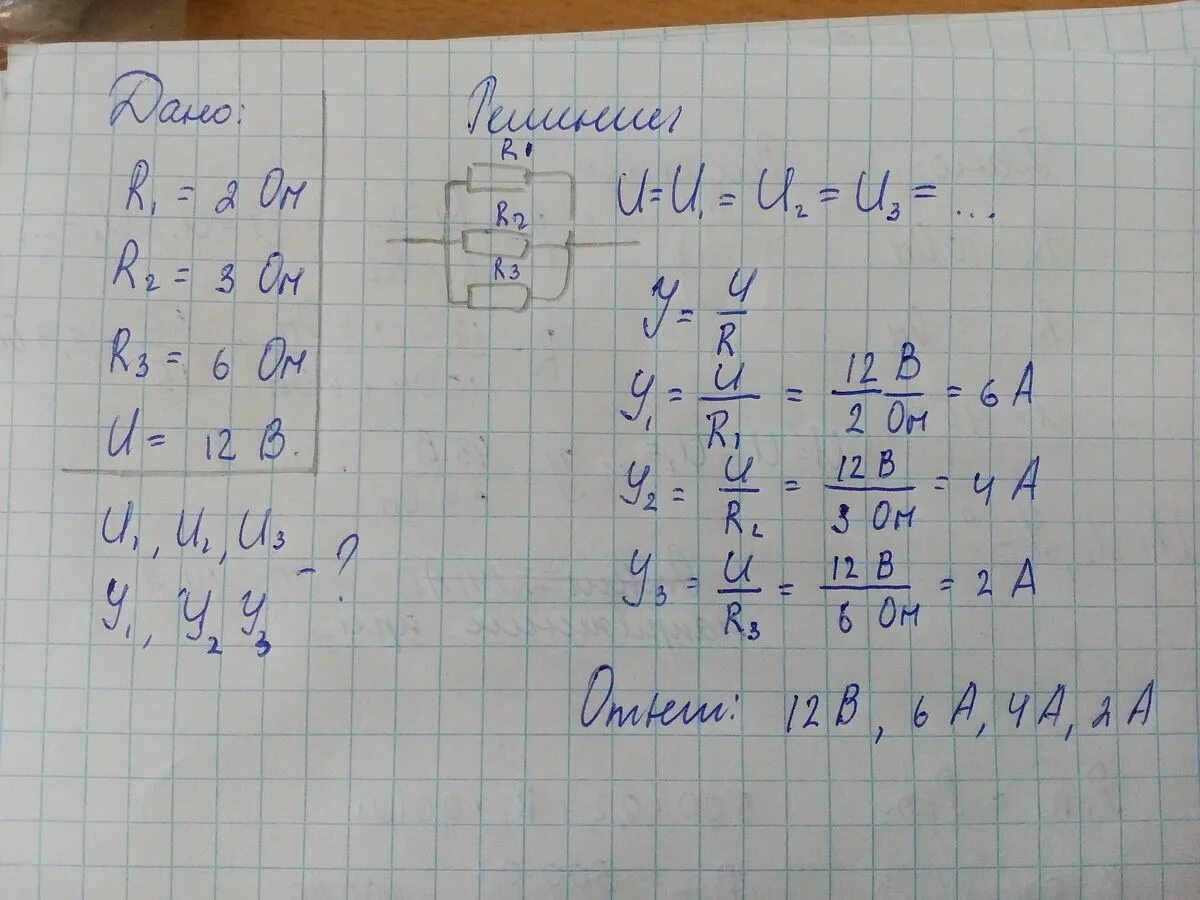 Дано:
R₁ = 2 Ом
R₂ = 3 Ом
R₃ = 6 Ом
U = 12 В.
U₁, U₂, U₃
У₁, У₂ У₃ - ?
Решение
R1
R2
R3
U = U₁ = U₂ = U₃ = ...
У = U/R
У₁ = U/R₁ = 12 В/2 Ом = 6 А
У₂ = U/R₂ = 12 В/3 Ом = 4 А
У₃ = U/R₃ = 12 В/6 Ом = 2 А
Ответ: 12 В, 6 А, 4 А, 2 А